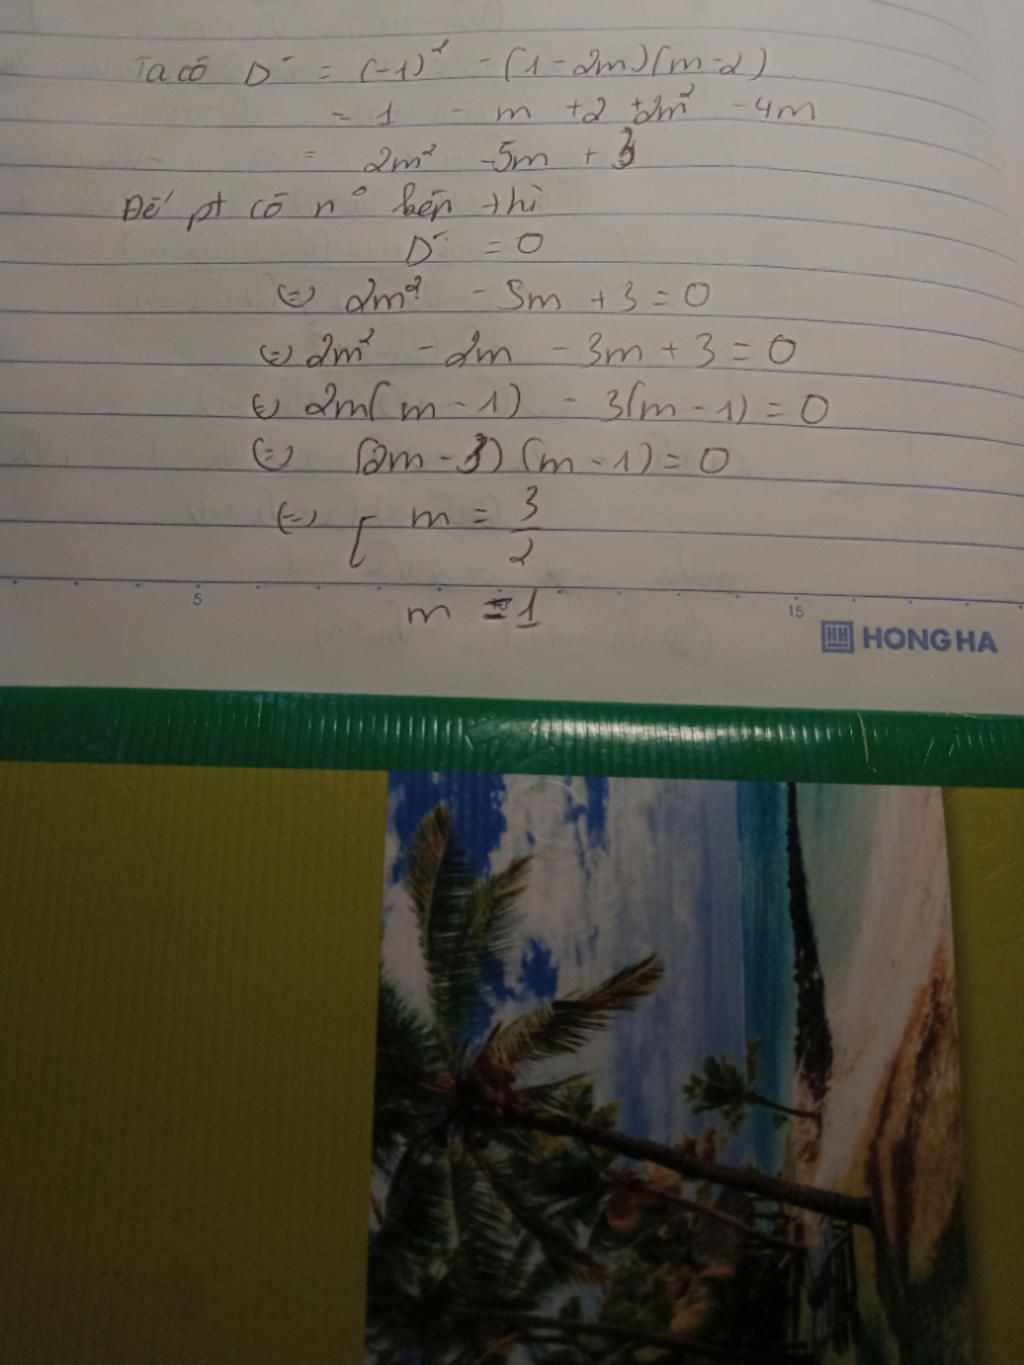 Ta có D' = (-1)² - (1-2m)(m-2)
= 1 - m +2 +2m² -4m
= 2m² -5m + 3
Để pt có n° kép thì
D' = 0
(=) 2m² - 5m + 3 = 0
(=) 2m² - 2m - 3m + 3 = 0
(=) 2m(m-1) - 3(m-1) = 0
(=) (2m-3)(m-1) = 0
(=) [ m = 3/2
m = 1
5 15
HH HONG HA